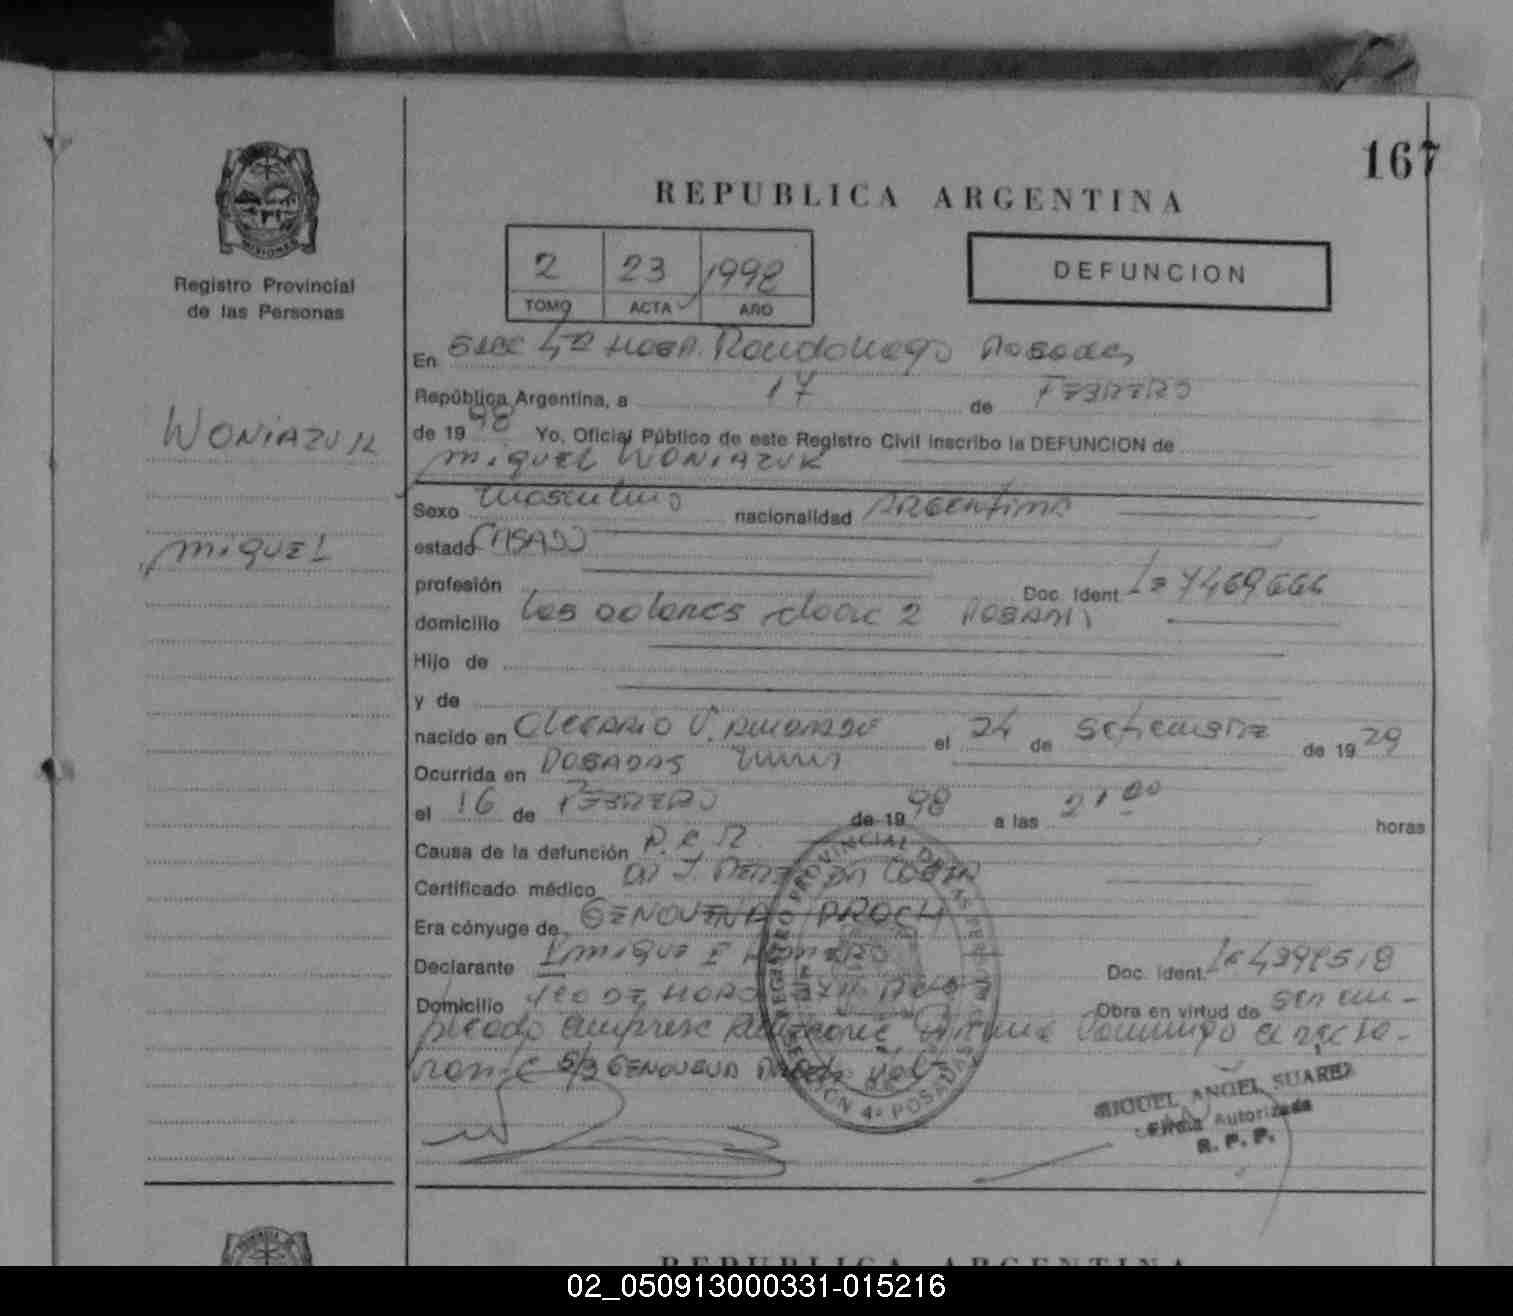 167
REPUBLICA ARGENTINA
2 23 1998
TOMO ACTA AÑO
DEFUNCION
Registro Provincial
de las Personas
WONIAZUK
MIGUEL
En Secc 4ta HOSP. Posadas
República Argentina, a 17 de FEBRERO
de 1998 Yo, Oficial Público de este Registro Civil inscribo la DEFUNCION de
MIGUEL WONIAZUK
Sexo masculino nacionalidad ARGENTINA
estado CASADO
profesión Doc. Ident. Le 7469666
domicilio Los 2 POSADAS
Hijo de
y de
nacido en OLEGARIO V. ANDRADE el 24 de setiembre de 1929
Ocurrida en POSADAS
el 16 de FEBRERO de 1998 a las 21 00 horas
Causa de la defunción P.C.R.
Certificado médico Dr J.
Era cónyuge de GENOVEVA PROCH
Declarante Doc. Ident.
Domicilio Obra en virtud de ser em-
pleado empresa
S/B GENOVEVA
REGISTRO PROVINCIAL DE LAS PERSONAS
SECCION 4a POSADAS
MIGUEL ANGEL SUAREZ
Firma Autorizada
R. P. P.
REPUBLICA ARGENTINA
02_050913000331-015216